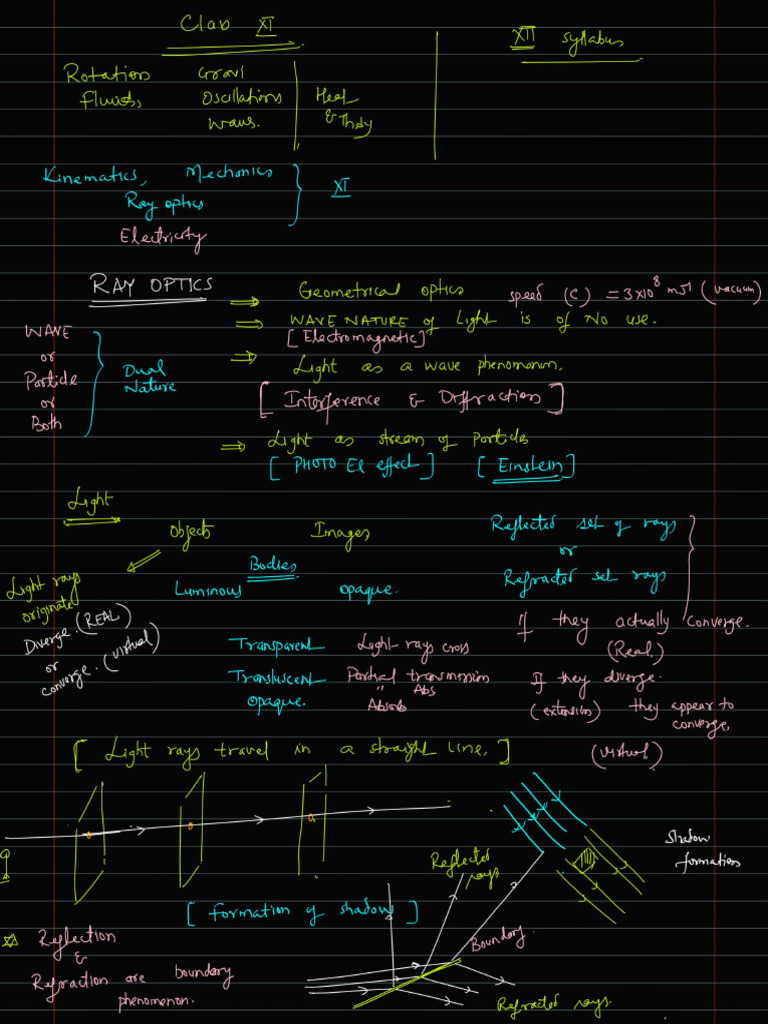 Class XI
XII syllabus
Rotation Gravi
Fluids, Oscillations Heat
Waves. & Thdy
Kinematics, Mechanics
Ray optics XI
Electricity
RAY OPTICS
Geometrical optics speed (c) = 3×10⁸ ms⁻¹ (vacuum)
WAVE NATURE of Light is of No use.
[Electromagnetic]
Light as a wave phenomenon.
[Interference & Diffraction]
WAVE
or
Particle
or
Both
Dual
Nature
Light as stream of Particles
[PHOTO El effect] [Einstein]
Light
Objects Images
Light rays
originate
Diverge. (REAL)
or
converge. (virtual)
Bodies
Luminous opaque.
Transparent Light rays cross
Translucent Partial transmission
" Abs
opaque. Absorb
Reflected set of rays
or
Refracted set rays
If they actually converge.
(Real.)
If they diverge.
(extension) they appear to
converge,
(virtual)
[Light rays travel in a straight line.]
Shadow
formation
Reflected
rays
[formation of shadow]
Reflection
&
Refraction are boundary
phenomenon.
Boundary.
Refracted rays.